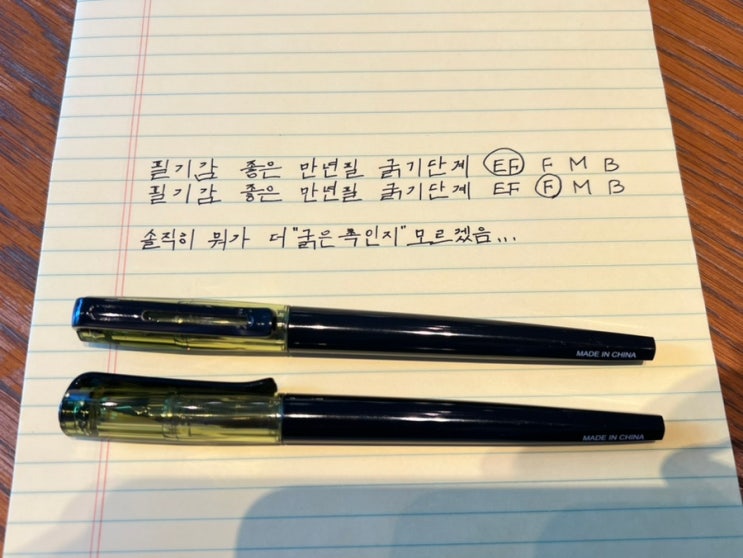 필기감 좋은 만년필 굵기단계 EF F M B
필기감 좋은 만년필 굵기단계 EF F M B
솔직히 뭐가 더 "굵은쪽인지" 모르겠음...
MADE IN CHINA
MADE IN CHINA